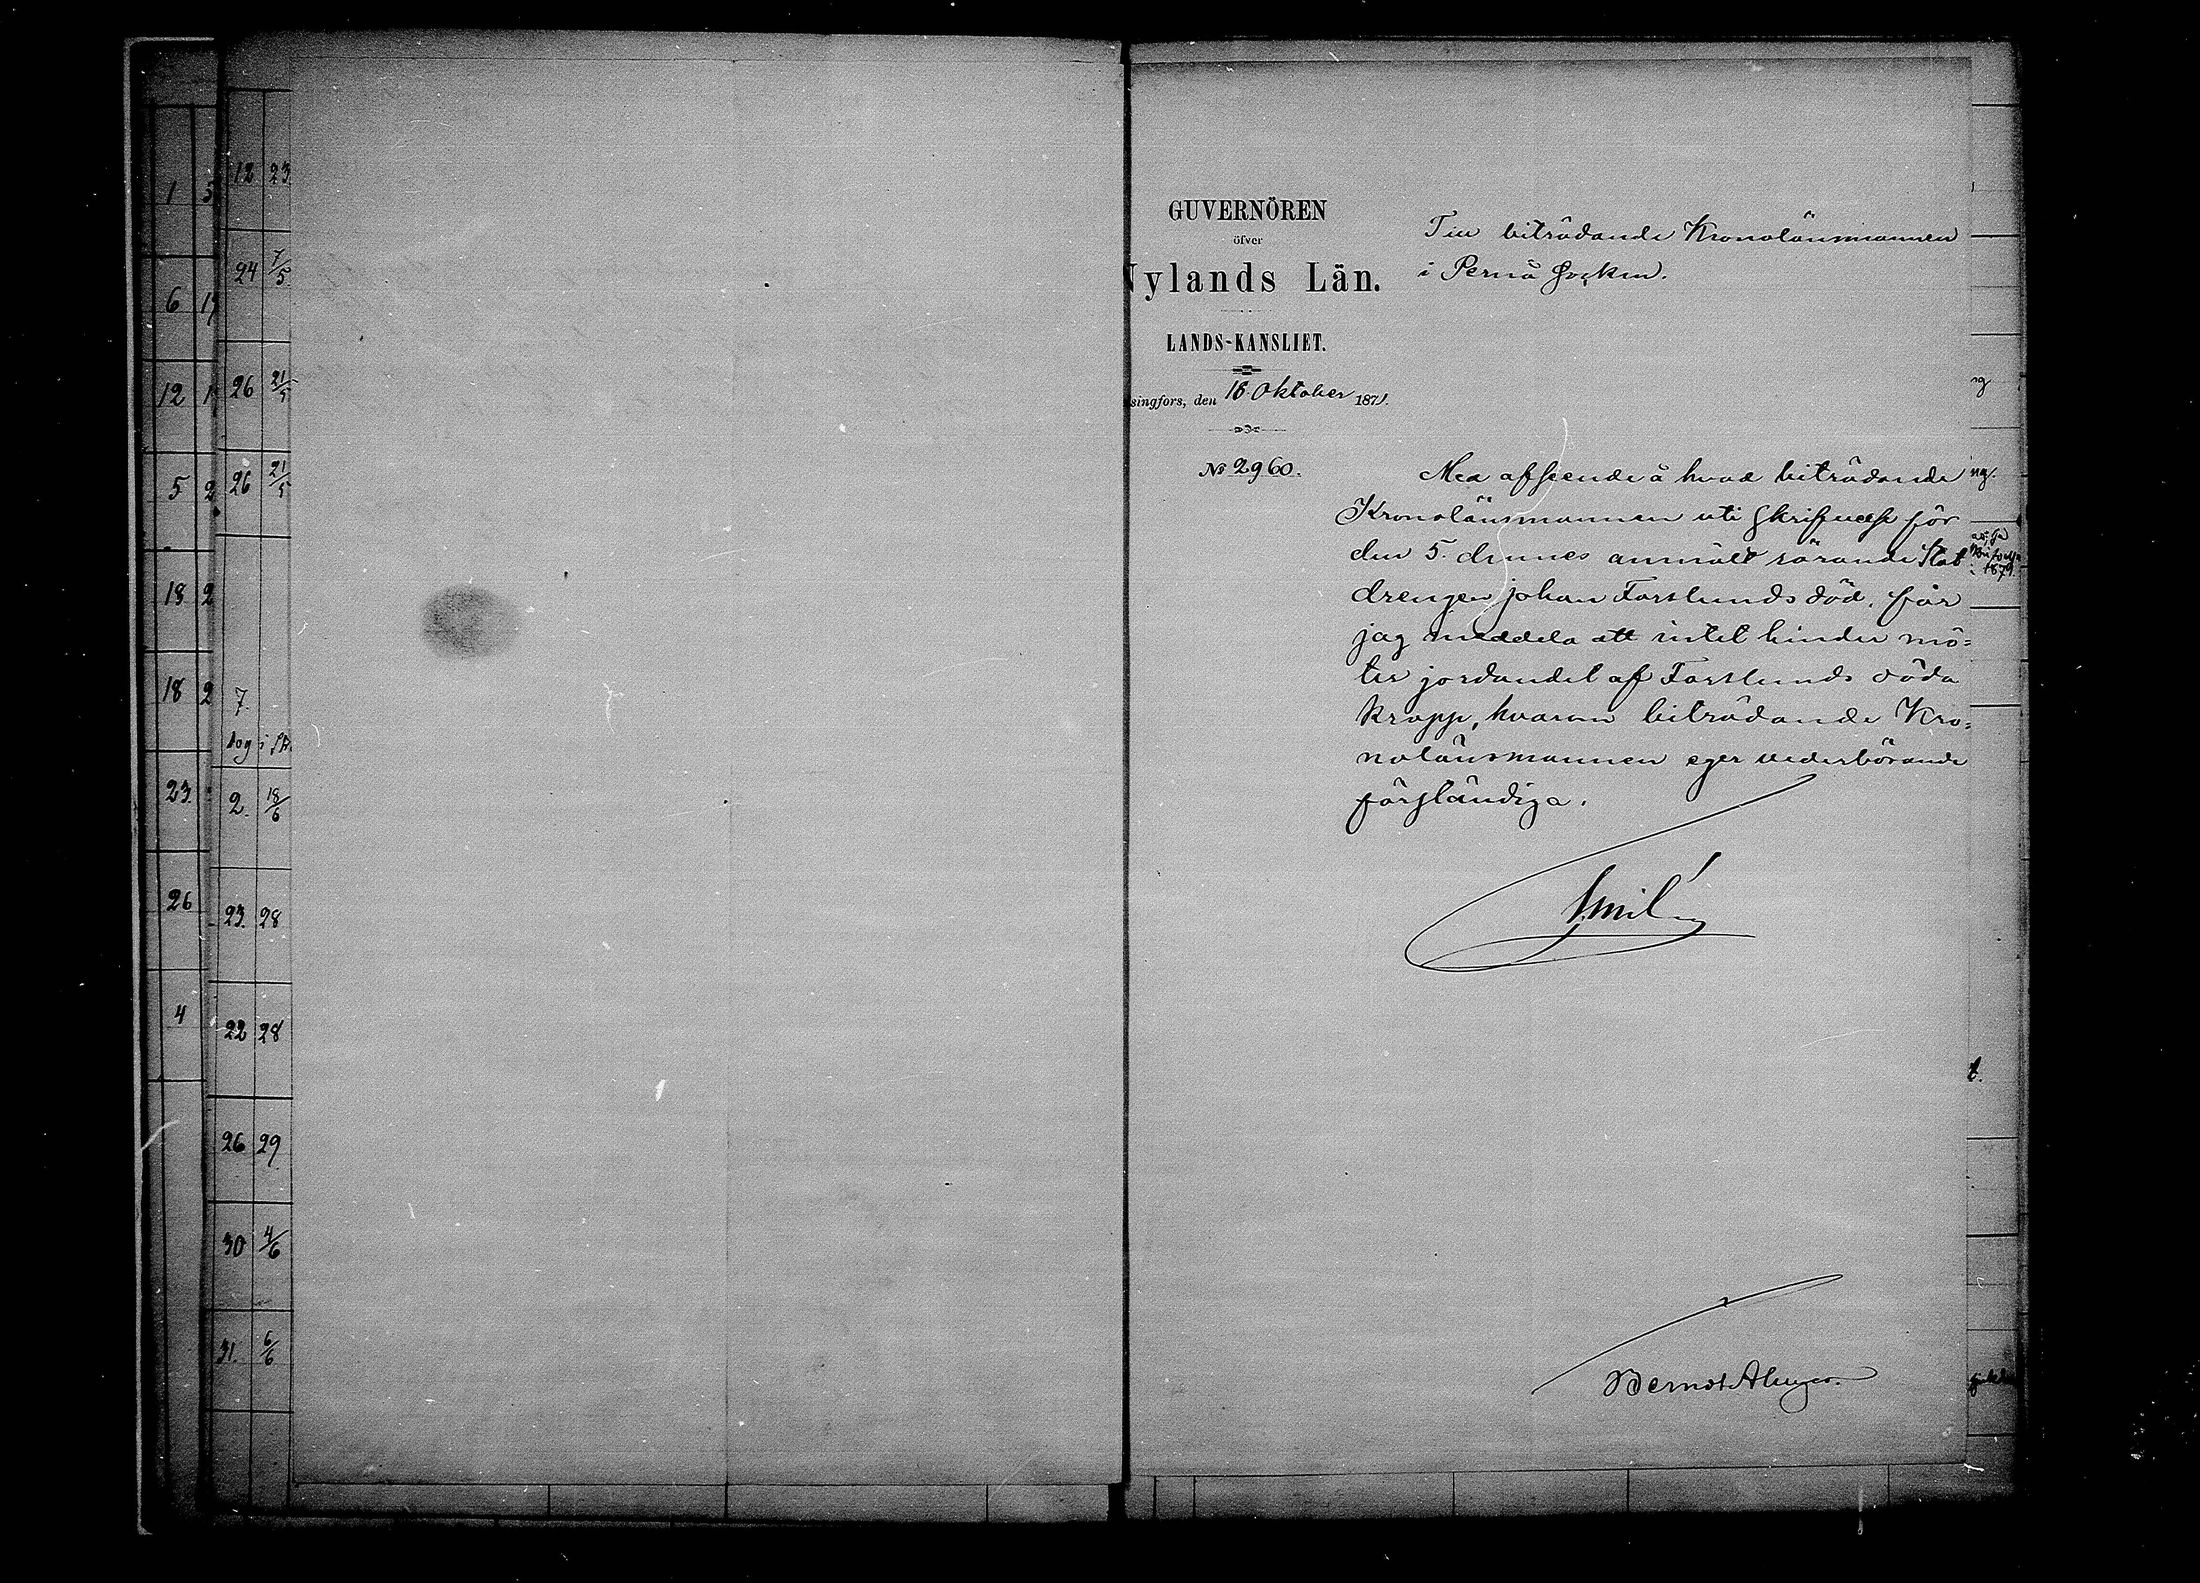 1 5
6 1
12 1
5 2
18 2
18 2
23.
26
4
12 23
24 7/5
26 21/5
26 21/5
7.
dog i
2. 18/6
23. 28
22 28
26 29
30 4/6
31. 6/6
GUVERNÖREN
öfver
Nylands Län.
LANDS-KANSLIET.
singfors, den 18 Oktober 1871.
No 2960.
Till biträdande Kronolänsmannen
i Pernå Socken.
Med afseende å hvad biträdande
Kronolänsmannen uti skrifvelse för
den 5. dennes anmält rörande Stat
drengen Johan Forslunds död, får
jag meddela att intet hinder mö-
ter jordandet af Forslunds döda
kropp, hvarom biträdande Kro-
nolänsmannen eger vederbörande
förständiga.
Berndt
ng.
1879.
t.